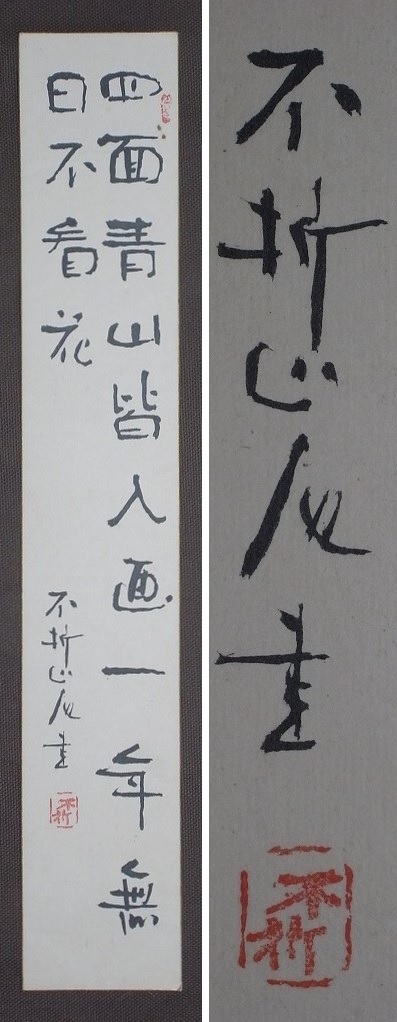 四面青山皆入画一年無
日不看花
不折山人書
不折
不折山人書
不折